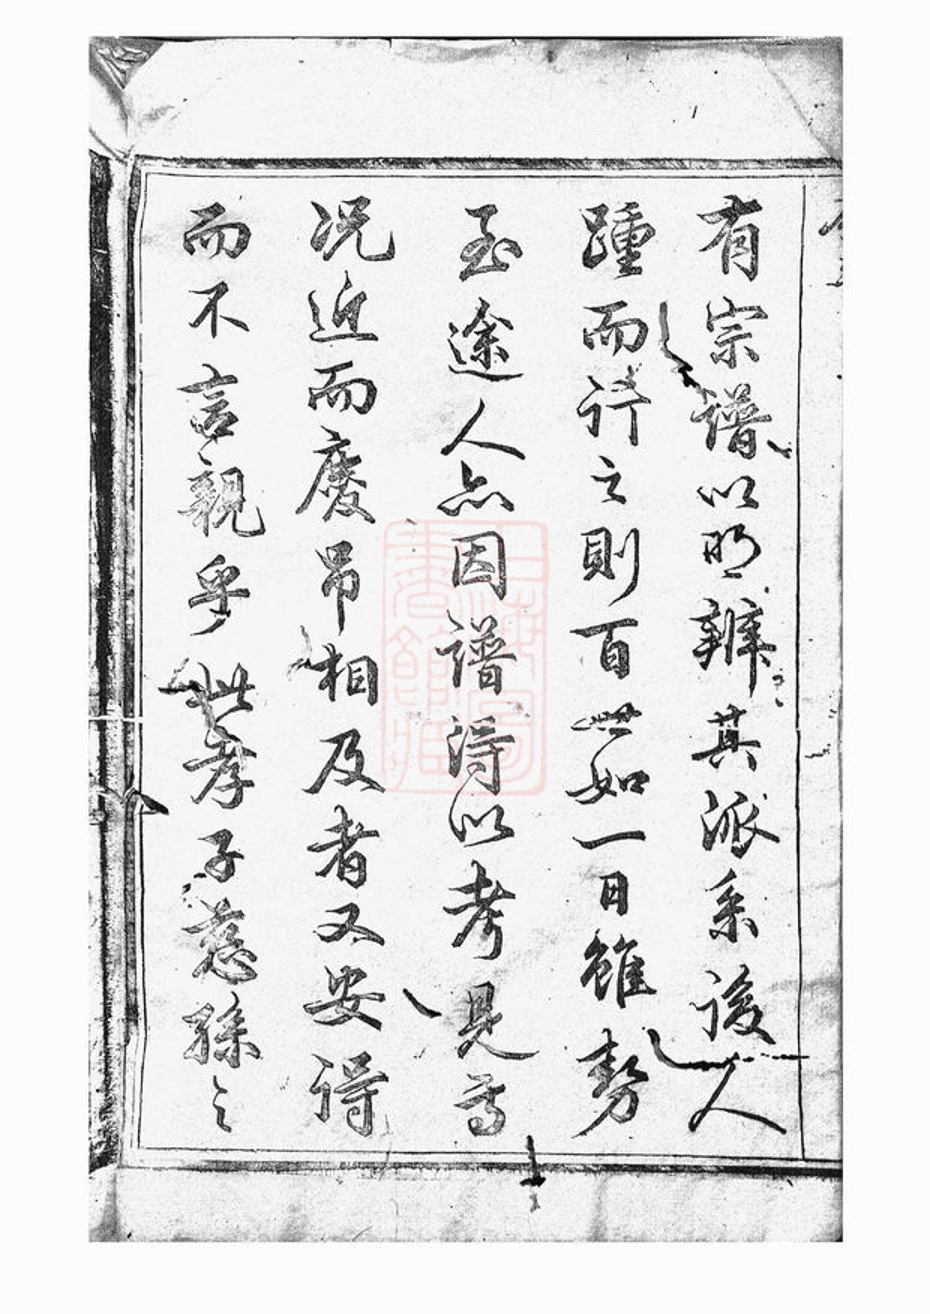 有宗譜以明辨其派系後人
踵而行之則百世如一日雖勢
至途人亦因譜得以考見焉
況近而慶吊相及者又安得
而不言親乎此孝子慈孫之